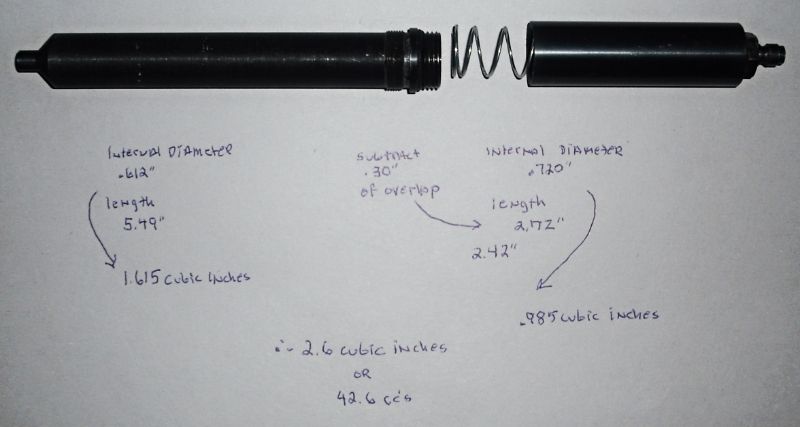 Internal Diameter
.612"
length
5.49"
1.615 cubic inches
subtract
.30"
of overlap
Internal Diameter
.720"
length
2.72"
2.42"
.985 cubic inches
∴ 2.6 cubic inches
OR
42.6 cc's